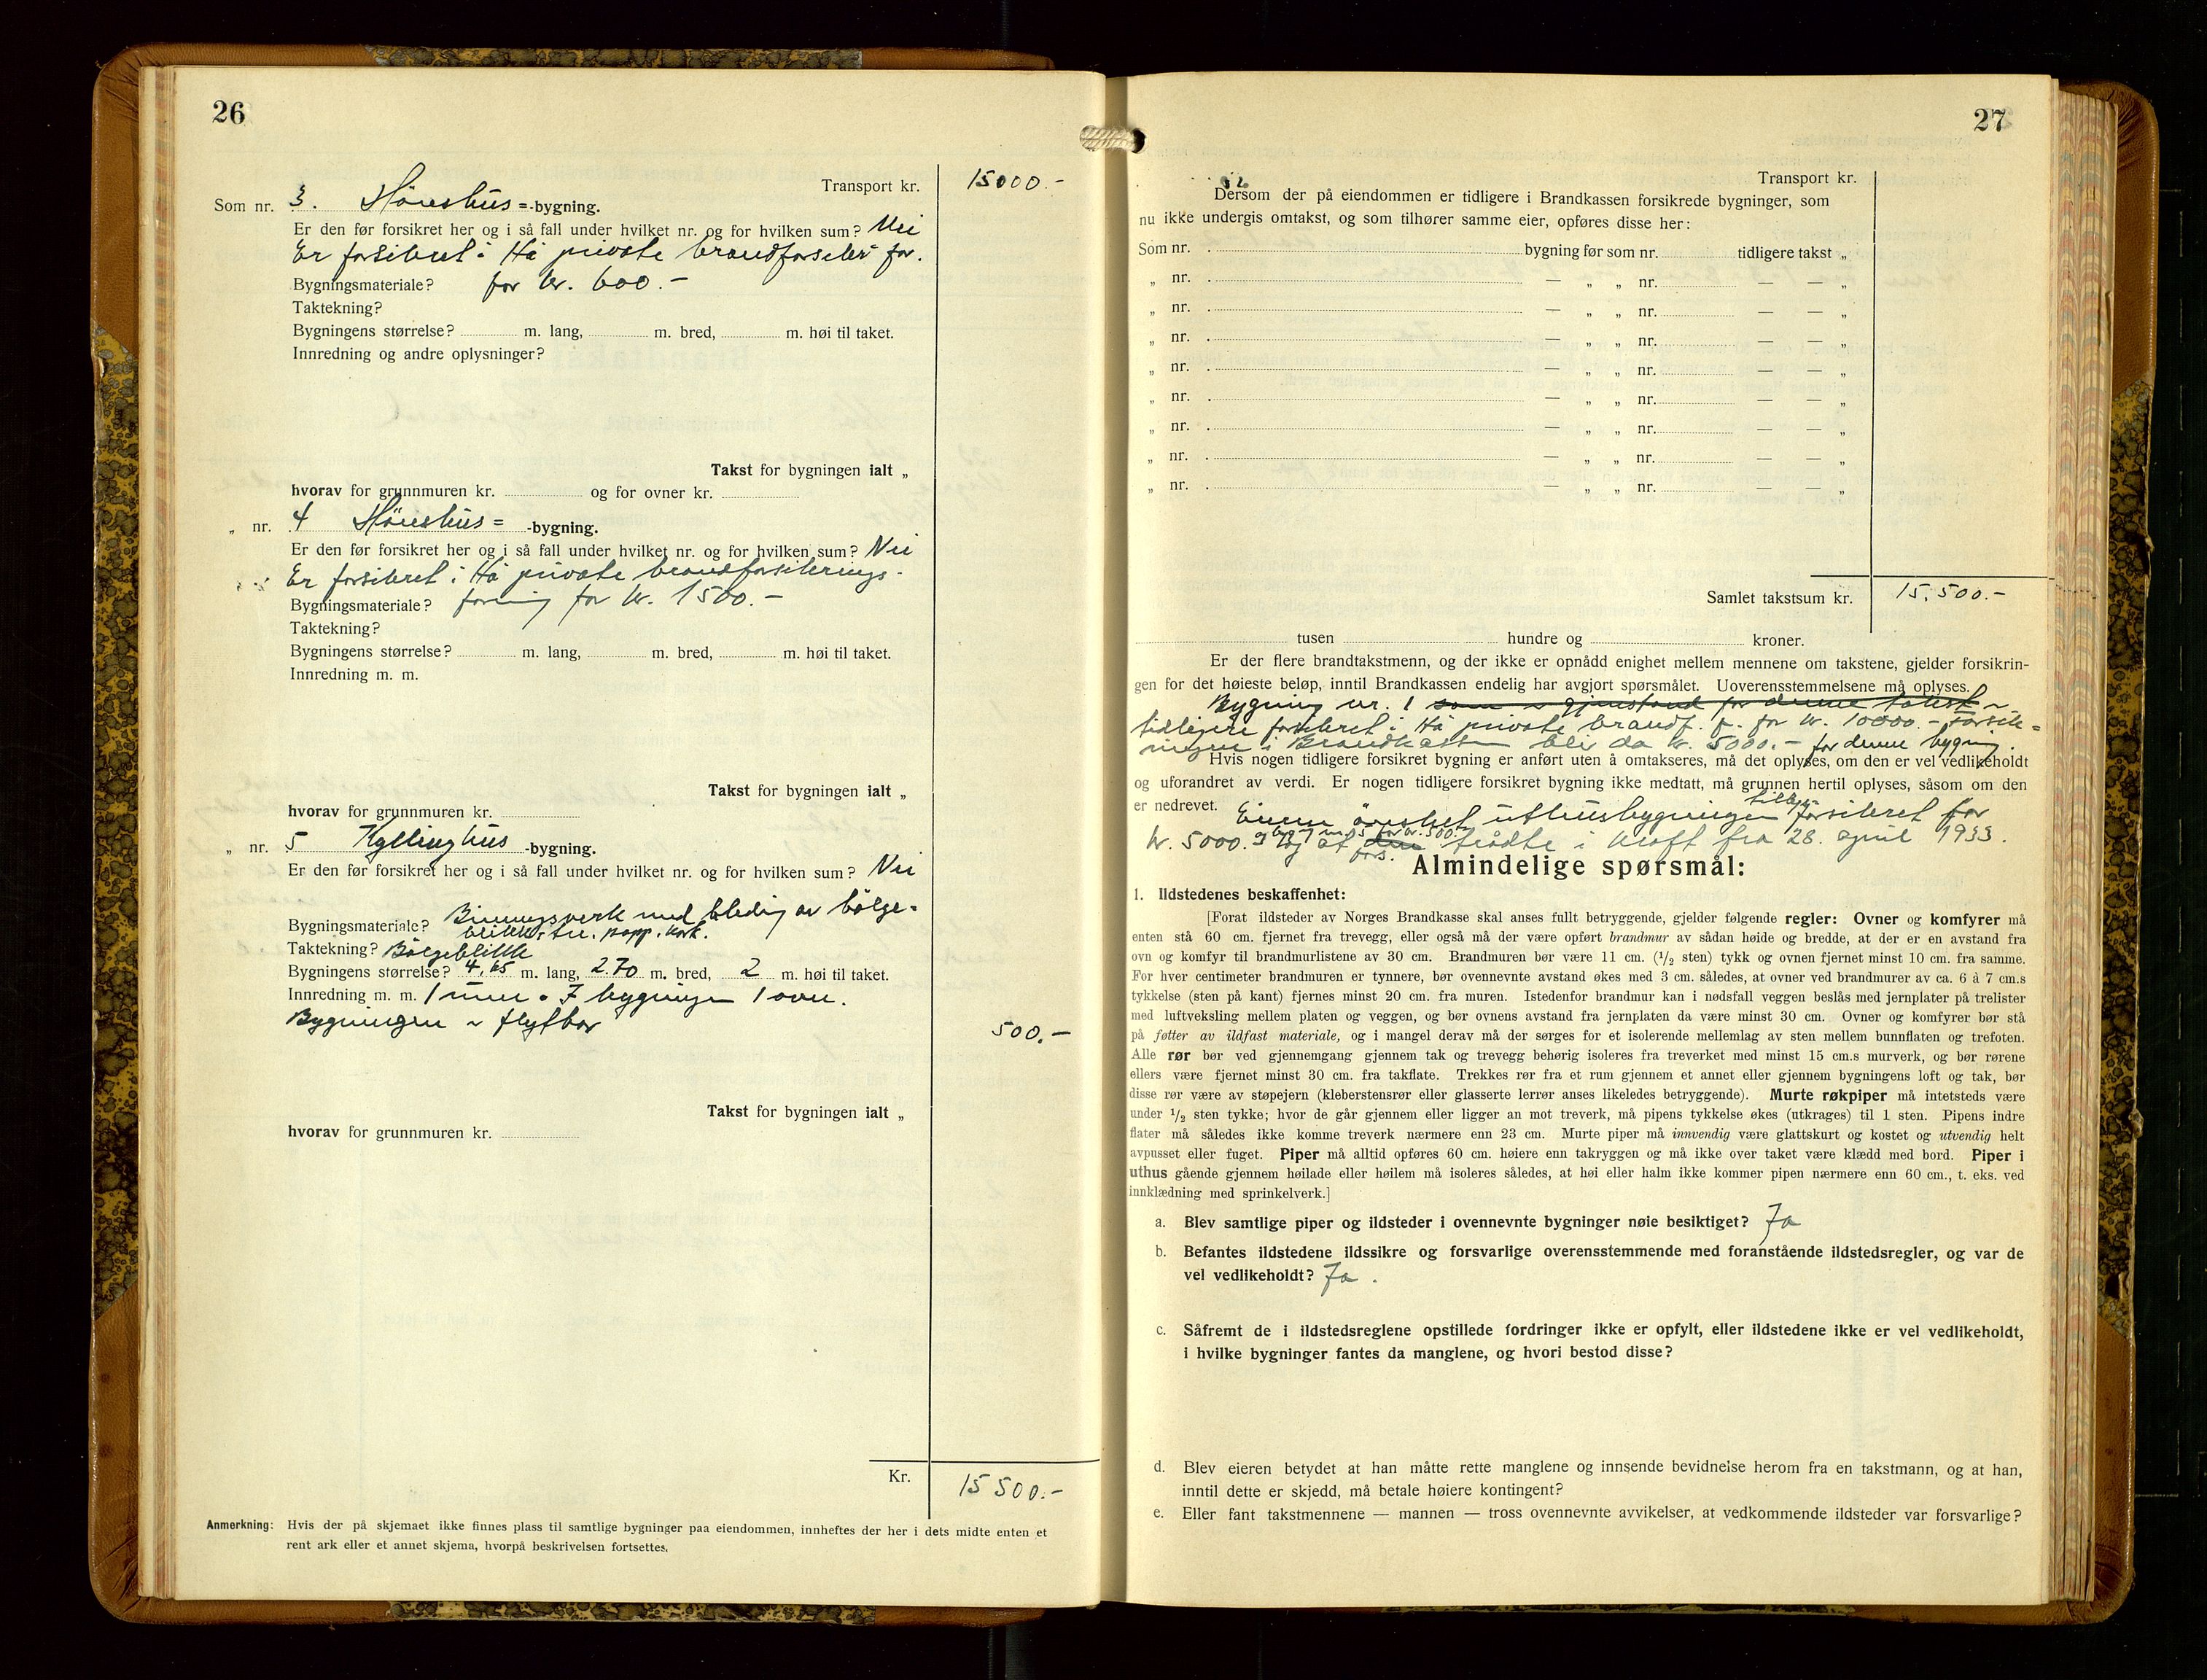 26
Transport kr. 15000.-
Som nr. 3. Hönshus=-bygning.
Er den før forsikret her og i så fall under hvilket nr. og for hvilken sum? Nei
Er forsikret i Hå private brandforsikr for.
Bygningsmateriale? for kr. 600.-
Taktekning?
Bygningens størrelse? m. lang, m. bred, m. høi til taket.
Innredning og andre oplysninger?
Takst for bygningen ialt „
hvorav for grunnmuren kr. og for ovner kr.
„ nr. 4 Hönshus= -bygning.
Er den før forsikret her og i så fall under hvilket nr. og for hvilken sum? Nei
Er forsikret i Hå private brandforsikrings-
Bygningsmateriale? forening for kr. 1500.-
Taktekning?
Bygningens størrelse? m. lang, m. bred, m. høi til taket.
Innredning m. m.
Takst for bygningen ialt „
hvorav for grunnmuren kr.
„ nr. 5 Kyllinghus -bygning.
Er den før forsikret her og i så fall under hvilket nr. og for hvilken sum? Nei
Bygningsmateriale? Binningsverk med kledning av bölge-
blikk, tre, papp, kork.
Taktekning? Bölgeblikk
Bygningens størrelse? 4,65 m. lang, 2.70 m. bred, 2 m. høi til taket.
Innredning m. m. 1 rum. I bygningen 1 ovn.
Bygningen er flytbar 500.-
Takst for bygningen ialt „
hvorav for grunnmuren kr.
Kr. 15 500.-
Anmerkning: Hvis der på skjemaet ikke finnes plass til samtlige bygninger paa eiendommen, innheftes der her i dets midte enten et
rent ark eller et annet skjema, hvorpå beskrivelsen fortsettes.
27
Transport kr.
Dersom der på eiendommen er tidligere i Brandkassen forsikrede bygninger, som
nu ikke undergis omtakst, og som tilhører samme eier, opføres disse her:
Som nr. bygning før som nr. tidligere takst „
„ nr. — „ „ nr. — — „
„ nr. — „ „ nr. — — „
„ nr. — „ „ nr. — — „
„ nr. — „ „ nr. — — „
„ nr. — „ „ nr. — — „
„ nr. — „ „ nr. — — „
„ nr. — „ „ nr. — — „
„ nr. — „ „ nr. — — „
Samlet takstsum kr. 15,500.-
tusen hundre og kroner.
Er der flere brandtakstmenn, og der ikke er opnådd enighet mellem mennene om takstene, gjelder forsikrin-
gen for det høieste beløp, inntil Brandkassen endelig har avgjort spørsmålet. Uoverensstemmelsene må oplyses.
Bygning nr. 1 som er gjenstand for denne takst er
tidligere forsikret i Hå private brandf. f. for kr. 10000.- Forsik=
ringen i Brandkassen blir da kr. 5000.- for denne bygning.
Hvis nogen tidligere forsikret bygning er anført uten å omtakseres, må det oplyses, om den er vel vedlikeholdt
og uforandret av verdi. Er nogen tidligere forsikret bygning ikke medtatt, må grunnen hertil oplyses, såsom om den
er nedrevet. Eieren önsket uthusbygningen tilleggsforsikret for
kr. 5000. og bygn nr. 5 for kr. 500.- og at den fors. trådte i kraft fra 28. april 1933.
Almindelige spørsmål:
1. Ildstedenes beskaffenhet:
[Forat ildsteder av Norges Brandkasse skal anses fullt betryggende, gjelder følgende regler: Ovner og komfyrer må
enten stå 60 cm. fjernet fra trevegg, eller også må der være opført brandmur av sådan høide og bredde, at der er en avstand fra
ovn og komfyr til brandmurlistene av 30 cm. Brandmuren bør være 11 cm. (1/2 sten) tykk og ovnen fjernet minst 10 cm. fra samme.
For hver centimeter brandmuren er tynnere, bør ovennevnte avstand økes med 3 cm. således, at ovner ved brandmurer av ca. 6 à 7 cm.s
tykkelse (sten på kant) fjernes minst 20 cm. fra muren. Istedenfor brandmur kan i nødsfall veggen beslås med jernplater på trelister
med luftveksling mellem platen og veggen, og bør ovnens avstand fra jernplaten da være minst 30 cm. Ovner og komfyrer bør stå
på føtter av ildfast materiale, og i mangel derav må der sørges for et isolerende mellemlag av sten mellem bunnflaten og trefoten.
Alle rør bør ved gjennemgang gjennem tak og trevegg behørig isoleres fra treverket med minst 15 cm.s murverk, og bør rørene
ellers være fjernet minst 30 cm. fra takflate. Trekkes rør fra et rum gjennem et annet eller gjennem bygningens loft og tak, bør
disse rør være av støpejern (kleberstensrør eller glasserte lerrør anses likeledes betryggende). Murte røkpiper må intetsteds være
under 1/2 sten tykke; hvor de går gjennem eller ligger an mot treverk, må pipens tykkelse økes (utkrages) til 1 sten. Pipens indre
flater må således ikke komme treverk nærmere enn 23 cm. Murte piper må innvendig være glattskurt og kostet og utvendig helt
avpusset eller fuget. Piper må alltid opføres 60 cm. høiere enn takryggen og må ikke over taket være klædd med bord. Piper i
uthus gående gjennem høilade eller høilem må isoleres således, at høi eller halm ikke kommer pipen nærmere enn 60 cm., t. eks. ved
innklædning med sprinkelverk.]
a. Blev samtlige piper og ildsteder i ovennevnte bygninger nøie besiktiget? Ja
b. Befantes ildstedene ildssikre og forsvarlige overensstemmende med foranstående ildstedsregler, og var de
vel vedlikeholdt? Ja.
c. Såfremt de i ildstedsreglene opstillede fordringer ikke er opfylt, eller ildstedene ikke er vel vedlikeholdt,
i hvilke bygninger fantes da manglene, og hvori bestod disse?
d. Blev eieren betydet at han måtte rette manglene og innsende bevidnelse herom fra en takstmann, og at han,
inntil dette er skjedd, må betale høiere kontingent?
e. Eller fant takstmennene — mannen — tross ovennevnte avvikelser, at vedkommende ildsteder var forsvarlige?